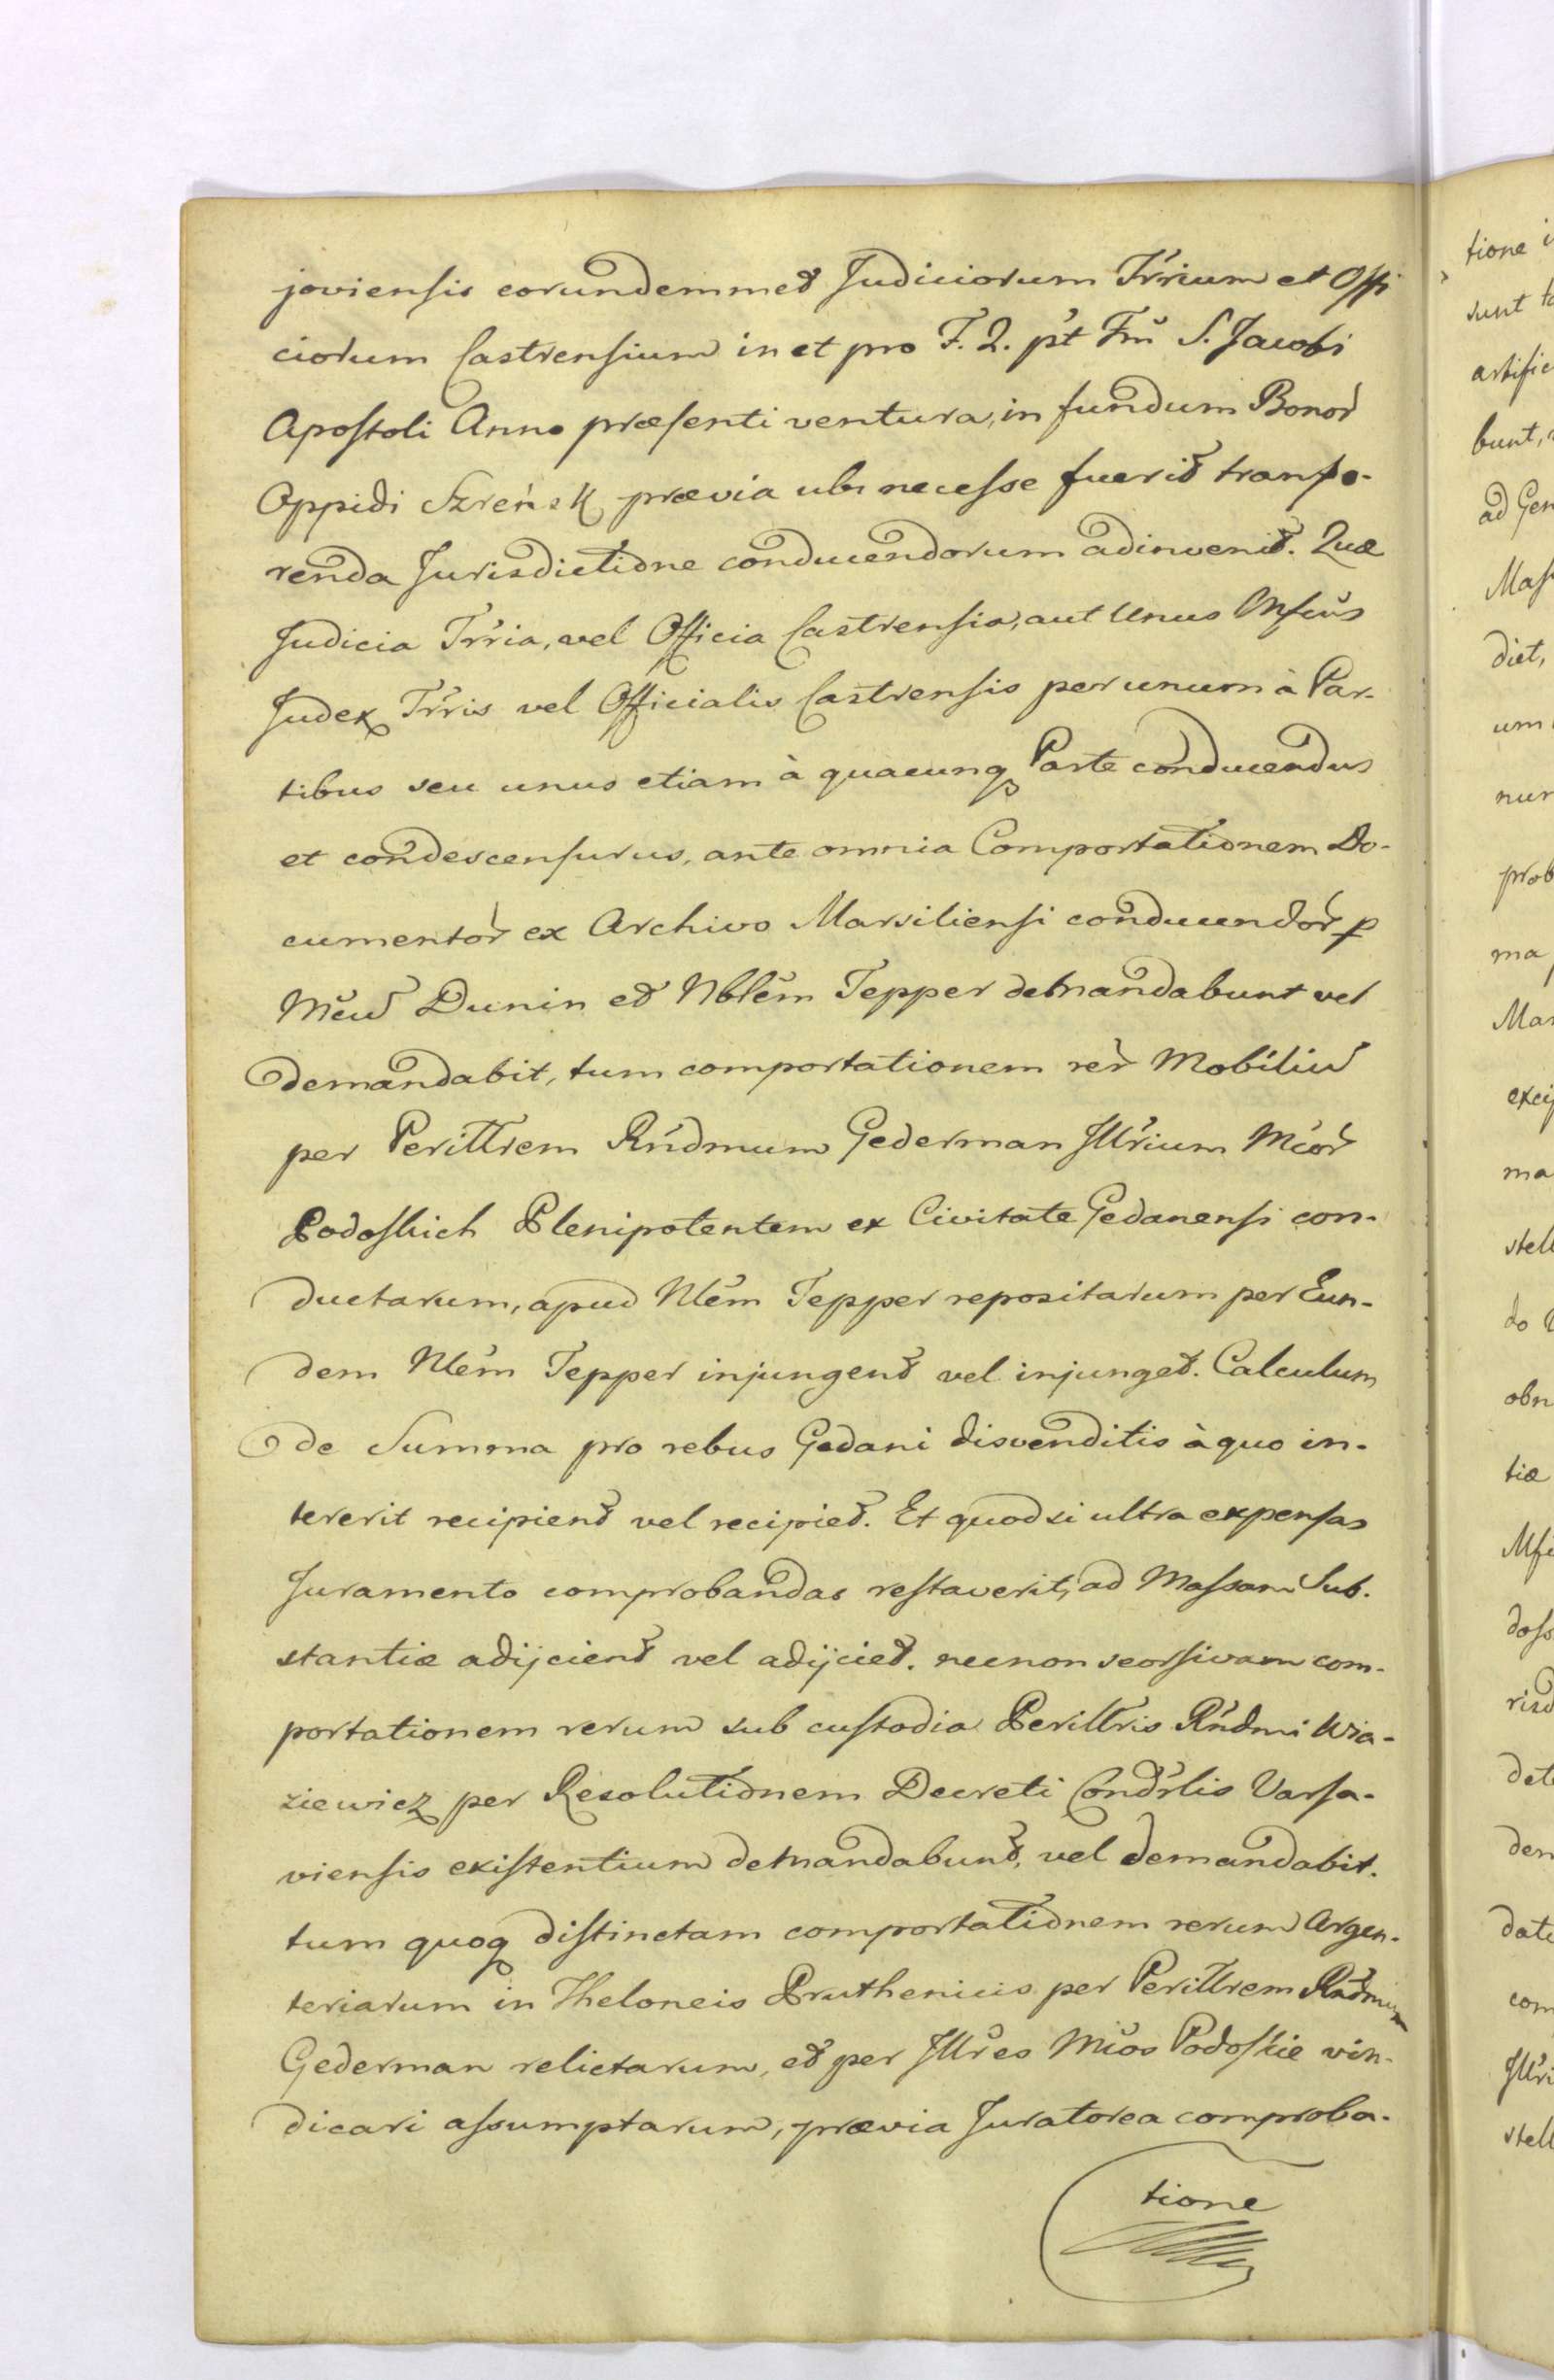 joviensis eorundemmet Judiciorum Trrium et Offi
ciorum Castrensium in et pro F. 2. pt Frũ S. Jacobi
Apostoli Anno præsenti ventura, in fundum Bonor
Oppidi Szreńsk prævia ubi necesse fuerit transfe-
renda Jurisdictione conducendorum adinvenit. Quæ
Judicia Trria, vel Officia Castrensia, aut Unus
Judex Trris vel Officialis Castrensis per unum à Par-
tibus seu unus etiam à quacunq Parte conducendus
et condescensurus, ante omnia Comportationem Do-
cumentor ex Archivo Marsiliensi conducendor p
Dunin et Nblem Tepper demandabunt vel
demandabit, tum comportationem rer Mobiliũ
per Perilltrem Rndmum Gederman Jllrium Mcor
Podoskich Plenipotentem ex Civitate Gedanensi con-
ductarum, apud Nlem Tepper repositarum per Eun-
dem Nlem Tepper injungent vel injunget. Calculum
de Summa pro rebus Gedani disvenditis à quo in-
tererit recipient vel recipiet. Et quod si ultra expensas
Juramento comprobandas restaverit, ad Massam Sub-
stantiæ adijcient vel adijciet. necnon seorsivam com-
portationem rerum sub custodia Perilltris Rndmi Wia-
ziewicz per Resolutionem Decreti Condrlis Varsa-
viensis existentium demandabunt, vel demandabit.
tum quoq distinctam comportationem rerum Argen-
teriarum in Theloneis Pruthenicis per Perilltrem Rndmum
Gederman relictarum, et per Jllres Mcos Podoskie vin-
dicari assumptarum, prævia Juratorea comproba-
tione
tione
sunt
artific
bunt,
ad Gen
Mas
diet,
um
nur
prob
ma
Mar
excip
ma
stell
do
obn
tiæ
doss
det
dem
date
com
Jllri
stell